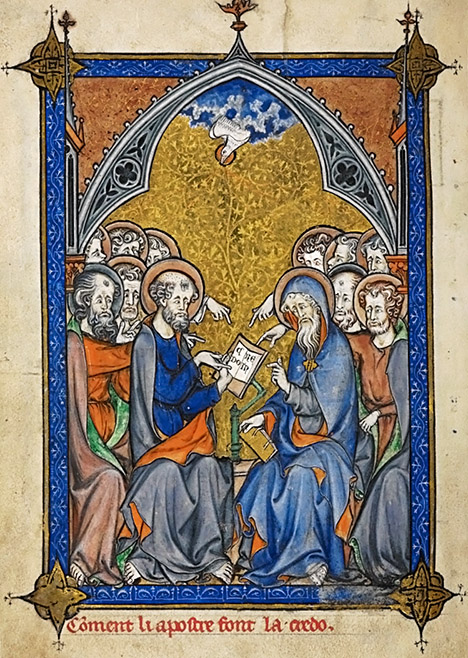 Cõment li apostre font la credo.